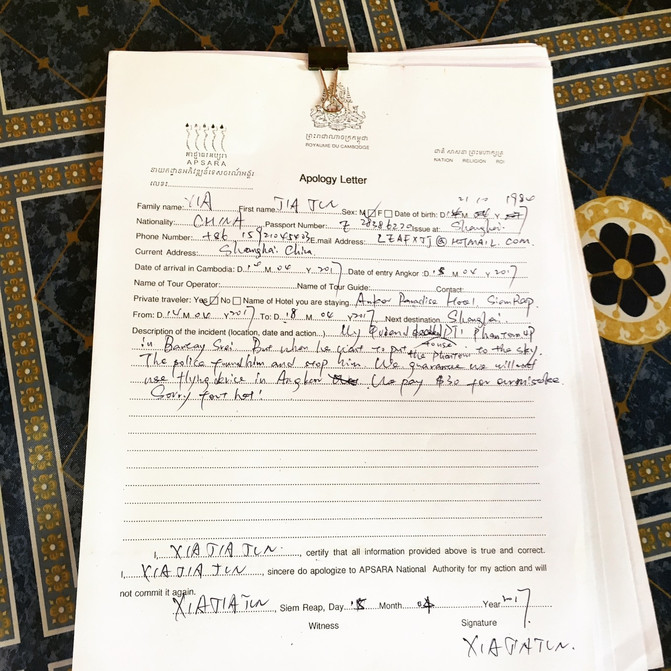 ព្រះរាជាណាចក្រកម្ពុជា
ROYAUME DU CAMBODGE
APSARA
NATION RELIGION ROI
លេខ:
Apology Letter
Family name: XIA First name: JIA JUN Sex: M F Date of birth: D: M Y 21 10 1986
Nationality: CHINA Passport Number: Issue at: Shanghai
Phone Number: +86 Email Address: @HOTMAIL.COM.
Current Address: Shanghai China.
Date of arrival in Cambodia: D. M 04 Y 2017 Date of entry Angkor: D. 15 M 04 Y 2017
Name of Tour Operator: Name of Tour Guide: Contact:
Private traveler: Yes No Name of Hotel you are staying Angkor Paradise Hotel. Siem Reap.
From: D. 14 M 04 Y 2017 To: D. 18 M 04 Y 2017 Next destination Shanghai.
Description of the incident (location, date and action...) My DJI Phantom up
in Srei. But when he to the Phantom to the sky.
The police him and stop him. We guarantee we will not
use flying device in Angkor. We pay $30 for
Sorry
I, XIA JIA JUN, certify that all information provided above is true and correct.
I, XIA JIA JUN, sincere do apologize to APSARA National Authority for my action and will
not commit it again.
XIA JIA JUN, Siem Reap, Day 15 Month 04 Year 2017
Witness Signature
XIA JIA JUN.